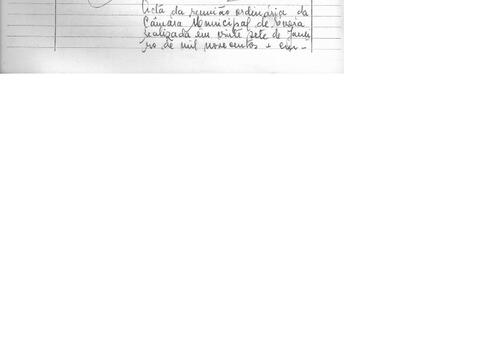 Acta da reunião ordinária da
Câmara Municipal de
realizada em vinte sete de Janei
ro de mil novecentos e cin-